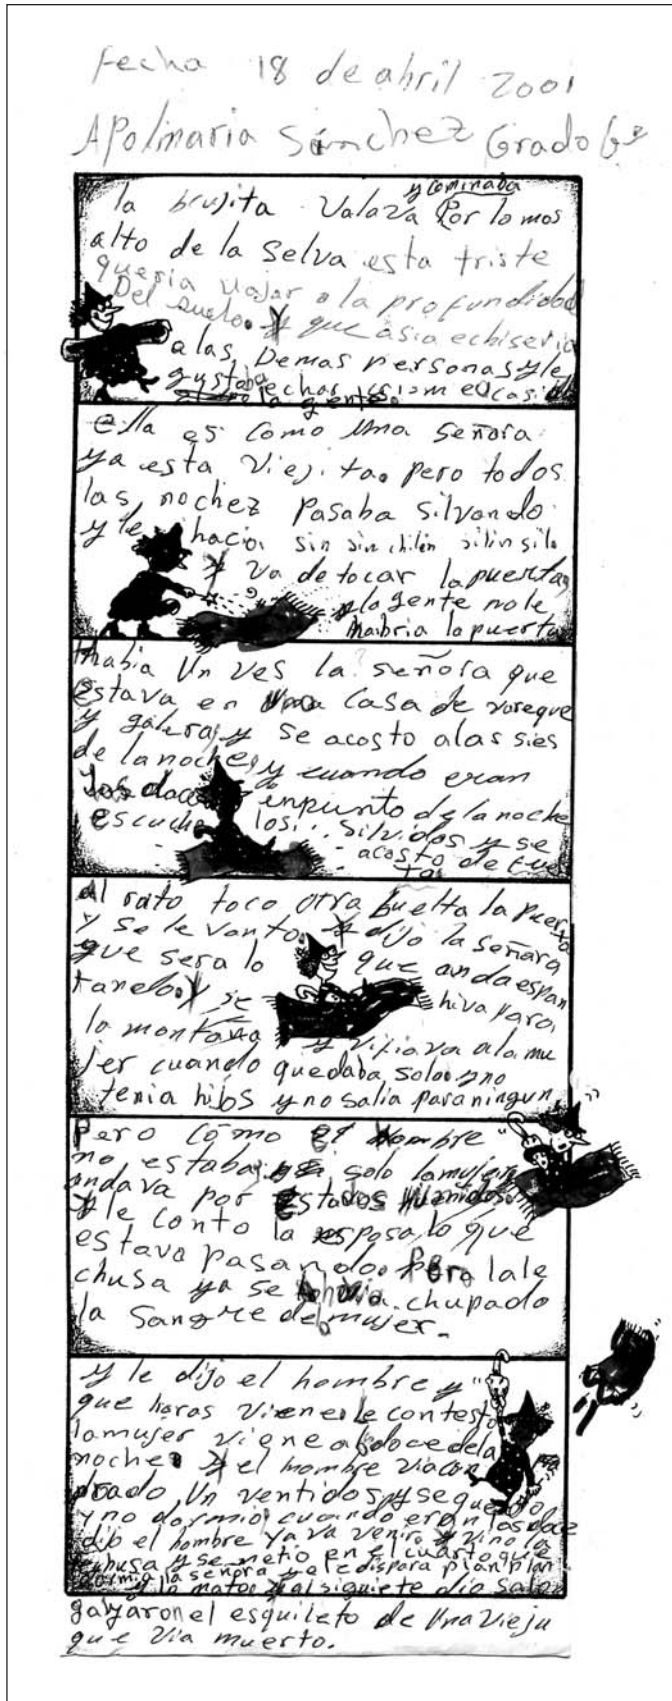 fecha 18 de abril 2001
APolinaria Sánchez Grado 6º
y cominaba
la brujita Valava Por lo mas
alto de la Selva esta triste
queria viajar a la profundidad
Del suelo. y que asia echiseria
a las Demas Personas y le
gustaba echar
a la gente.
ella es como una señora
ya esta viejita. pero todos
las nochez Pasaba silvando
y le hacia sin sin chilin silin silo
y va de tocar la puerta
y la gente no le
habria la puerta
Habia Un ves la señora que
Estava en una casa de
y galera, y se acosto alas sies
de la noche, y cuando eran
Las doce enpunto de la noche
escucho los... silvidos y se
acosto de
Al rato toco otra buelta la puerta
y se levanto. y dijo la señora
que sera lo que anda espan
tanedo. y se hiva para
la montaña y viziava a la mu
jer cuando quedaba solo. y no
tenia hijos y no salia para ningun
Pero como el hombre
no estaba solo la mujer
andava por Estados Hunidos
y le conto la esposa, lo que
estava pasando. Pero la le
chusa ya se habia chupado
la sangre de la mujer.
y le dijo el hombre y
que horas viene. le contesto
la mujer viene a las doce de la
noche. y el hombre via con
prado Un ventidos, y se quedo
y no dormio, cuando eran las doce
dijo el hombre ya va venir. y vino la
chusa y se metio en el cuarto que
dormia la señora y le dispara plan plan
y la mato. y al siguiete dia
galgaron el esquileto de Una vieja
que via muerto.